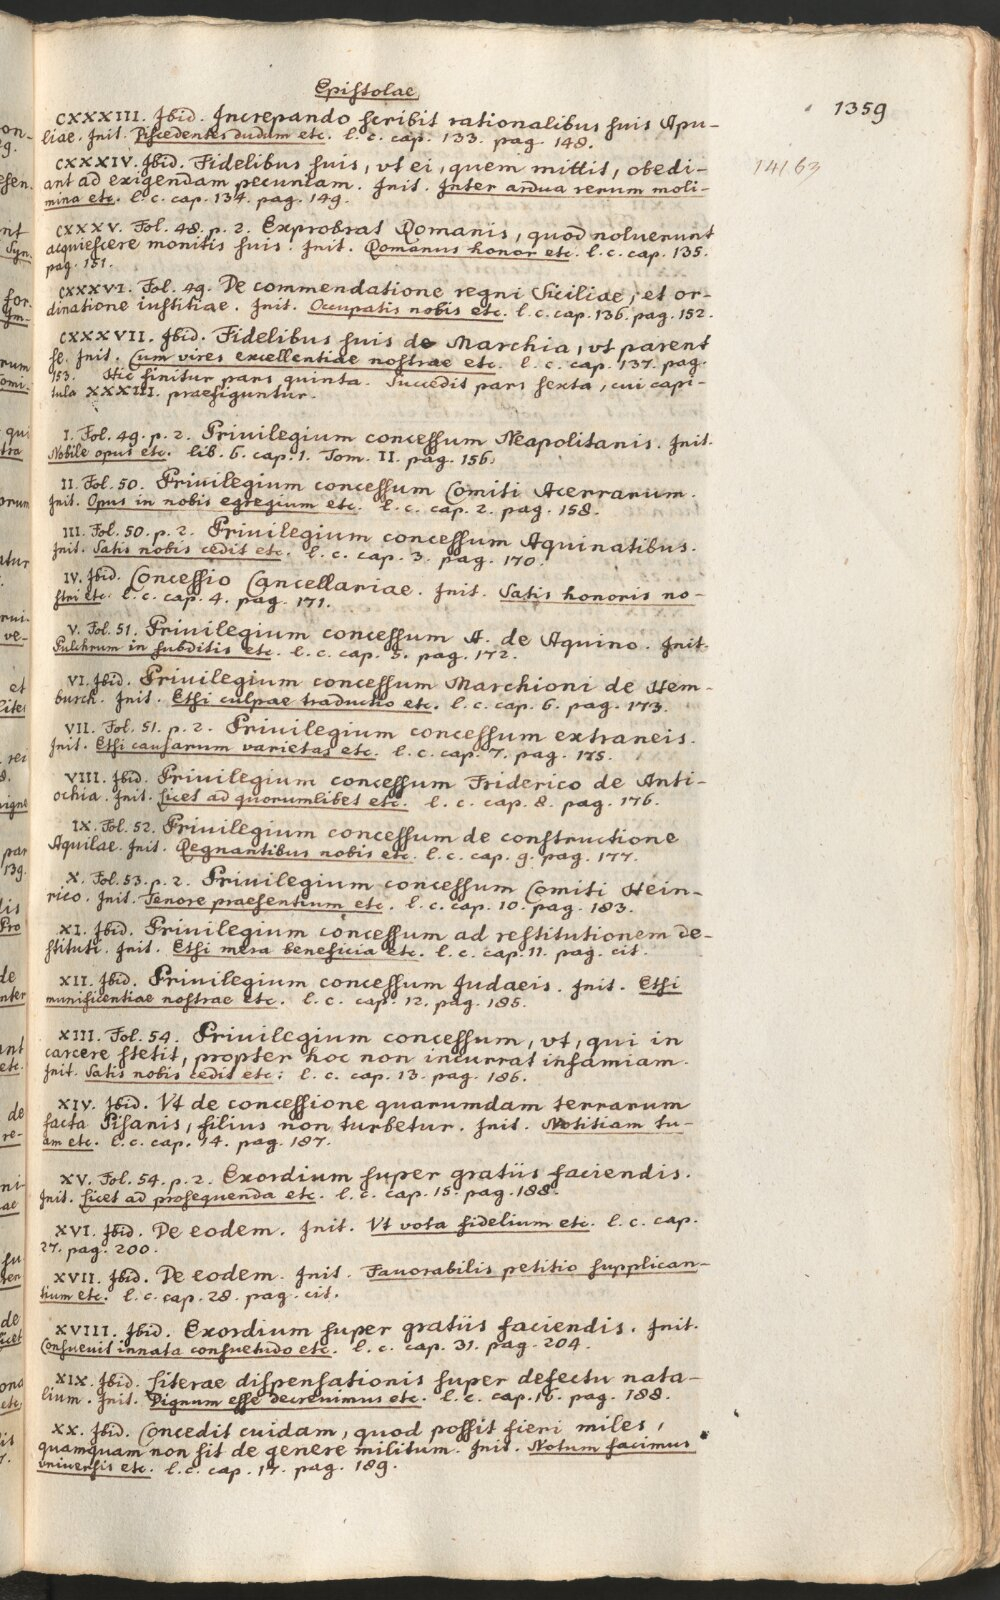 Epistolae
1359
14163
CXXXIII. Ibid. Increpando scribit rationalibus suis Apu-
liae. Init. Discedentes dudum etc. l. c. cap. 133. pag. 148.
CXXXIV. Ibid. Fidelibus suis, vt ei, quem mittit, obedi-
ant ad exigendam pecuniam. Init. Inter ardua rerum moli-
mina etc. l. c. cap. 134. pag. 149.
CXXXV. Fol. 48. p. 2. Exprobrat Romanis, quod noluerunt
acquiescere monitis suis. Init. Romanus honor etc. l. c. cap. 135.
pag. 151.
CXXXVI. Fol. 49. De commendatione regni Siciliae, et or-
dinatione iustitiae. Init. Occupatis nobis etc. l. c. cap. 136. pag. 152.
CXXXVII. Ibid. Fidelibus suis de Marchia, vt parent
se. Init. Cum vires excellentiae nostrae etc. l. c. cap. 137. pag.
153. Hic finitur pars quinta. Succedit pars sexta, cui capi-
tula XXXIII. praefiguntur.
I. Fol. 49. p. 2. Priuilegium concessum Neapolitanis. Init.
Nobile opus etc. lib. 6. cap. 1. Tom. II. pag. 156.
II. Fol. 50. Priuilegium concessum Comiti Acerrarum.
Init. Opus in nobis egregium etc. l. c. cap. 2. pag. 158.
III. Fol. 50. p. 2. Priuilegium concessum Aquinatibus.
Init. Satis nobis cedit etc. l. c. cap. 3. pag. 170.
IV. Ibid. Concessio Cancellariae. Init. Satis honoris no-
stri etc. l. c. cap. 4. pag. 171.
V. Fol. 51. Priuilegium concessum A. de Aquino. Init.
Pulchrum in subditis etc. l. c. cap. 5. pag. 172.
VI. Ibid. Priuilegium concessum Marchioni de Hem-
burch. Init. Etsi culpae traductio etc. l. c. cap. 6. pag. 173.
VII. Fol. 51. p. 2. Priuilegium concessum extraneis.
Init. Etsi causarum varietas etc. l. c. cap. 7. pag. 175.
VIII. Ibid. Priuilegium concessum Friderico de Anti-
ochia. Init. Licet ad quorumlibet etc. l. c. cap. 8. pag. 176.
IX. Fol. 52. Priuilegium concessum de constructione
Aquilae. Init. Regnantibus nobis etc. l. c. cap. 9. pag. 177.
X. Fol. 53. p. 2. Priuilegium concessum Comiti Hein-
rico. Init. Tenore praesentium etc. l. c. cap. 10. pag. 183.
XI. Ibid. Priuilegium concessum ad restitutionem de-
stituti. Init. Etsi mera beneficia etc. l. c. cap. 11. pag. cit.
XII. Ibid. Priuilegium concessum Iudaeis. Init. Etsi
munificentiae nostrae etc. l. c. cap. 12. pag. 185.
XIII. Fol. 54. Priuilegium concessum, vt, qui in
carcere stetit, propter hoc non incurrat infamiam.
Init. Satis nobis cedit etc: l. c. cap. 13. pag. 186.
XIV. Ibid. Vt de concessione quarumdam terrarum
facta Pisanis, filius non turbetur. Init. Notitiam tu-
am etc. l. c. cap. 14. pag. 187.
XV. Fol. 54. p. 2. Exordium super gratiis faciendis.
Init. Licet ad prosequenda etc. l. c. cap. 15. pag. 188.
XVI. Ibid. De eodem. Init. Vt vota fidelium etc. l. c. cap.
27. pag. 200.
XVII. Ibid. De eodem. Init. Fauorabilis petitio supplican-
tium etc. l. c. cap. 28. pag. cit.
XVIII. Ibid. Exordium super gratiis faciendis. Init.
Consueuit innata consuetudo etc. l. c. cap. 31. pag. 204.
XIX. Ibid. Literae dispensationis super defectu nata-
lium. Init. Dignum esse decernimus etc. l. c. cap. 16. pag. 188.
XX. Ibid. Concedit cuidam, quod possit fieri miles,
quamquam non sit de genere militum. Init. Notum facimus
vniuersis etc. l. c. cap. 17. pag. 189.